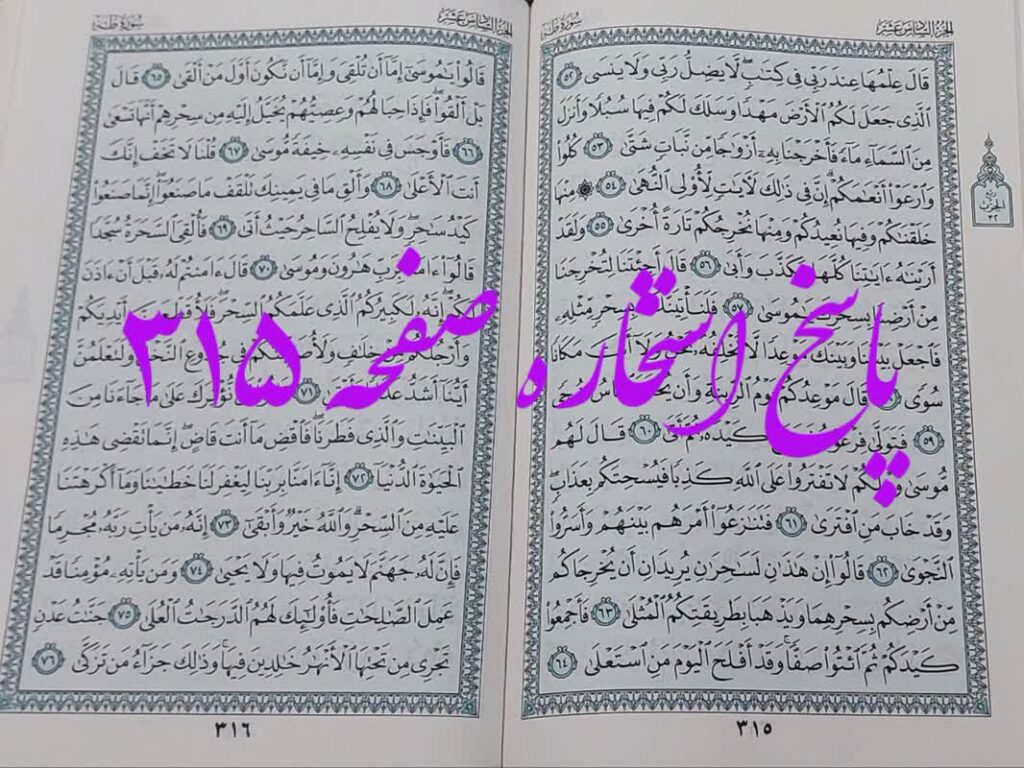 الجزء السادس عشر
سورة طه
قَالَ عِلْمُهَا عِندَ رَبِّي فِي كِتَٰبٍ لَّا يَضِلُّ رَبِّي وَلَا يَنسَى ٥٢
ٱلَّذِي جَعَلَ لَكُمُ ٱلْأَرْضَ مَهْدًا وَسَلَكَ لَكُمْ فِيهَا سُبُلًا وَأَنزَلَ
مِنَ ٱلسَّمَآءِ مَآءً فَأَخْرَجْنَا بِهِۦٓ أَزْوَٰجًا مِّن نَّبَاتٍ شَتَّىٰ ٥٣ كُلُوا۟
وَٱرْعَوْا۟ أَنْعَٰمَكُمْ إِنَّ فِي ذَٰلِكَ لَءَايَٰتٍ لِّأُو۟لِي ٱلنُّهَىٰ ٥٤ ۞ مِنْهَا
خَلَقْنَٰكُمْ وَفِيهَا نُعِيدُكُمْ وَمِنْهَا نُخْرِجُكُمْ تَارَةً أُخْرَىٰ ٥٥ وَلَقَدْ
أَرَيْنَٰهُ ءَايَٰتِنَا كُلَّهَا فَكَذَّبَ وَأَبَىٰ ٥٦ قَالَ أَجِئْتَنَا لِتُخْرِجَنَا
مِنْ أَرْضِنَا بِسِحْرِكَ يَٰمُوسَىٰ ٥٧ فَلَنَأْتِيَنَّكَ بِسِحْرٍ مِّثْلِهِۦ
فَٱجْعَلْ بَيْنَنَا وَبَيْنَكَ مَوْعِدًا لَّا نُخْلِفُهُۥ نَحْنُ وَلَآ أَنتَ مَكَانًا
سُوًى قَالَ مَوْعِدُكُمْ يَوْمُ ٱلزِّينَةِ وَأَن يُحْشَرَ ٱلنَّاسُ ضُحًى
٥٩ فَتَوَلَّىٰ فِرْعَوْنُ كَيْدَهُۥ ثُمَّ أَتَىٰ ٦٠ قَالَ لَهُم
مُّوسَىٰ وَيْلَكُمْ لَا تَفْتَرُوا۟ عَلَى ٱللَّهِ كَذِبًا فَيُسْحِتَكُم بِعَذَابٍ
وَقَدْ خَابَ مَنِ ٱفْتَرَىٰ ٦١ فَتَنَٰزَعُوٓا۟ أَمْرَهُم بَيْنَهُمْ وَأَسَرُّوا۟
ٱلنَّجْوَىٰ ٦٢ قَالُوٓا۟ إِنْ هَٰذَٰنِ لَسَٰحِرَٰنِ يُرِيدَانِ أَن يُخْرِجَاكُم
مِّنْ أَرْضِكُم بِسِحْرِهِمَا وَيَذْهَبَا بِطَرِيقَتِكُمُ ٱلْمُثْلَىٰ ٦٣ فَأَجْمِعُوا۟
كَيْدَكُمْ ثُمَّ ٱئْتُوا۟ صَفًّا وَقَدْ أَفْلَحَ ٱلْيَوْمَ مَنِ ٱسْتَعْلَىٰ ٦٤
٣١٥
الجزء السادس عشر
سورة طه
قَالُوا۟ يَٰمُوسَىٰٓ إِمَّآ أَن تُلْقِيَ وَإِمَّآ أَن نَّكُونَ أَوَّلَ مَنْ أَلْقَىٰ ٦٥ قَالَ
بَلْ أَلْقُوا۟ فَإِذَا حِبَالُهُمْ وَعِصِيُّهُمْ يُخَيَّلُ إِلَيْهِ مِن سِحْرِهِمْ أَنَّهَا تَسْعَىٰ
٦٦ فَأَوْجَسَ فِي نَفْسِهِۦ خِيفَةً مُّوسَىٰ ٦٧ قُلْنَا لَا تَخَفْ إِنَّكَ
أَنتَ ٱلْأَعْلَىٰ ٦٨ وَأَلْقِ مَا فِي يَمِينِكَ تَلْقَفْ مَا صَنَعُوٓا۟ إِنَّمَا صَنَعُوا۟
كَيْدُ سَٰحِرٍ وَلَا يُفْلِحُ ٱلسَّاحِرُ حَيْثُ أَتَىٰ ٦٩ فَأُلْقِيَ ٱلسَّحَرَةُ سُجَّدًا
قَالُوٓا۟ ءَامَنَّا بِرَبِّ هَٰرُونَ وَمُوسَىٰ ٧٠ قَالَ ءَامَنتُمْ لَهُۥ قَبْلَ أَنْ ءَاذَنَ
لَكُمْ إِنَّهُۥ لَكَبِيرُكُمُ ٱلَّذِي عَلَّمَكُمُ ٱلسِّحْرَ فَلَأُقَطِّعَنَّ أَيْدِيَكُمْ
وَأَرْجُلَكُم مِّنْ خِلَٰفٍ وَلَأُصَلِّبَنَّكُمْ فِي جُذُوعِ ٱلنَّخْلِ وَلَتَعْلَمُنَّ
أَيُّنَآ أَشَدُّ عَذَابًا ٧١ نُّؤْثِرَكَ عَلَىٰ مَا جَآءَنَا مِنَ
ٱلْبَيِّنَٰتِ وَٱلَّذِي فَطَرَنَا فَٱقْضِ مَآ أَنتَ قَاضٍ إِنَّمَا تَقْضِي هَٰذِهِ
ٱلْحَيَوٰةَ ٱلدُّنْيَآ ٧٢ إِنَّآ ءَامَنَّا بِرَبِّنَا لِيَغْفِرَ لَنَا خَطَٰيَٰنَا وَمَآ أَكْرَهْتَنَا
عَلَيْهِ مِنَ ٱلسِّحْرِ وَٱللَّهُ خَيْرٌ وَأَبْقَىٰٓ ٧٣ إِنَّهُۥ مَن يَأْتِ رَبَّهُۥ مُجْرِمًا
فَإِنَّ لَهُۥ جَهَنَّمَ لَا يَمُوتُ فِيهَا وَلَا يَحْيَىٰ ٧٤ وَمَن يَأْتِهِۦ مُؤْمِنًا قَدْ
عَمِلَ ٱلصَّٰلِحَٰتِ فَأُو۟لَٰٓئِكَ لَهُمُ ٱلدَّرَجَٰتُ ٱلْعُلَىٰ ٧٥ جَنَّٰتُ عَدْنٍ
تَجْرِي مِن تَحْتِهَا ٱلْأَنْهَٰرُ خَٰلِدِينَ فِيهَا وَذَٰلِكَ جَزَآءُ مَن تَزَكَّىٰ ٧٦
٣١٦
پاسخ استخاره صفحه ۳۱۵